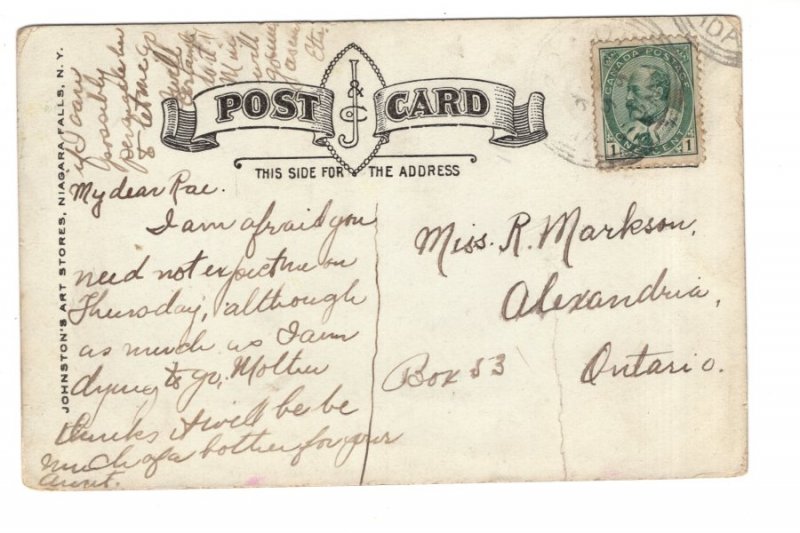 POST CARD
J & J
THIS SIDE FOR THE ADDRESS
JOHNSTON'S ART STORES, NIAGARA FALLS, N.Y.
CANADA POSTAGE
ONE CENT
1 1
My dear Rae.
I am afraid you
need not expect me on
Thursday, although
as much as I am
dying to go, Mother
thinks it will be be
much of a bother for your
Aunt.
if I can
possibly
persuade her
to let me go
I will
certainly
Miss. R. Markson,
Alexandria,
Box 53
Ontario.